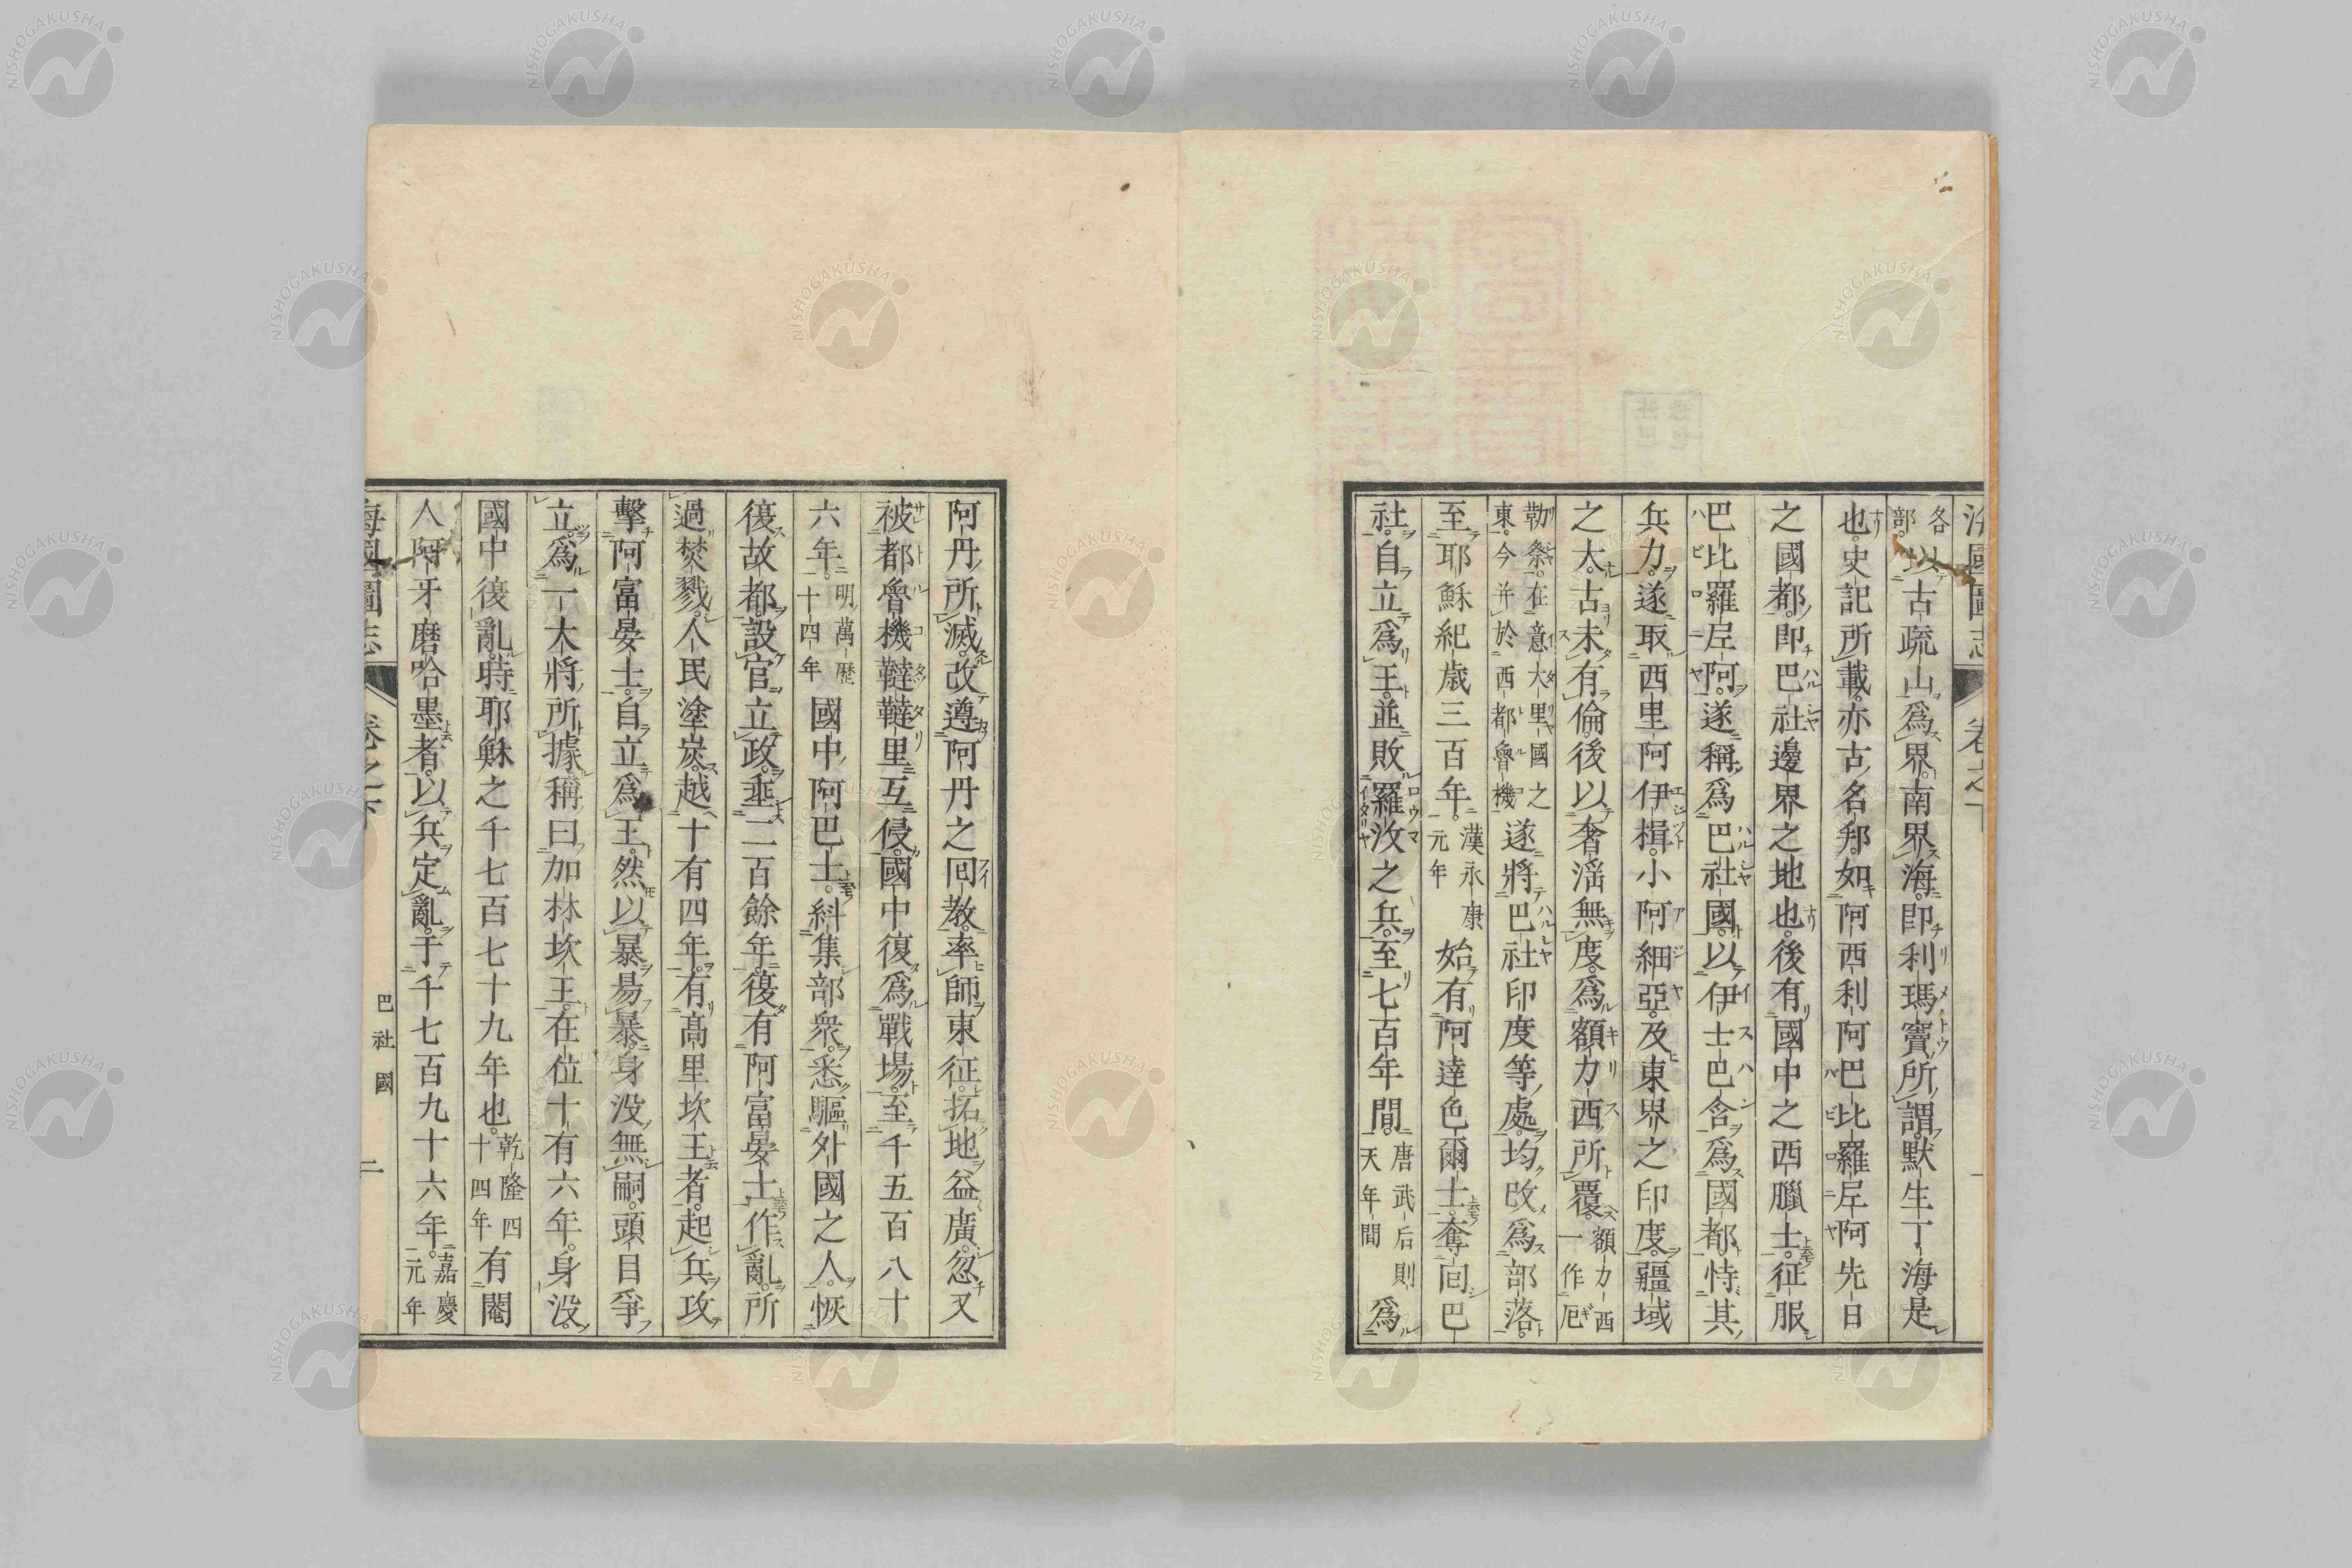 海國圖志 卷之下
各部以古疏山爲界。南界海。即利瑪竇所謂默生丁海。是
也。史記所載。亦古名邦。如阿西利阿巴比羅尼阿先日
之國都。即巴社邊界之地也。後有國中之西臘士。征服
巴比羅尼阿。遂稱爲巴社國。以伊士巴含爲國都。恃其
兵力。遂取西里阿伊楫。小阿細亞。及東界之印度。疆域
之大。古未有倫。後以奢滛無度。爲額力西所覆。額力西一作厄
勒祭。在意大里國之東。今并於西都魯機遂將巴社印度等處。均改爲部落。
至耶穌紀歲三百年。漢永康元年始有阿達色爾士奪囘巴
社。自立爲王。並敗羅汝之兵。至七百年間。唐武后則天年間爲
阿丹所滅。改遵阿丹之囘教。率師東征。拓地益廣。忽又
被都魯機韃韃里互侵。國中復爲戰場。至千五百八十
六年。明萬歷十四年國中阿巴士。糾集部衆。悉驅外國之人。恢
復故都。設官立政。垂二百餘年。復有阿富晏士作亂。所
過焚戮。人民塗炭。越十有四年。有髙里坎王者。起兵攻
擊阿富晏士。自立爲王。然以暴昜暴。身没無嗣。頭目爭
立。爲一大將所據。稱曰加林坎王。在位十有六年。身没。
國中復亂。時耶穌之千七百七十九年也。乾隆四十四年有閹
人阿牙磨哈墨者。以兵定亂。于千七百九十六年。嘉慶元年
海國圖志 卷之下 巴社國 二
NISHOGAKUSHA